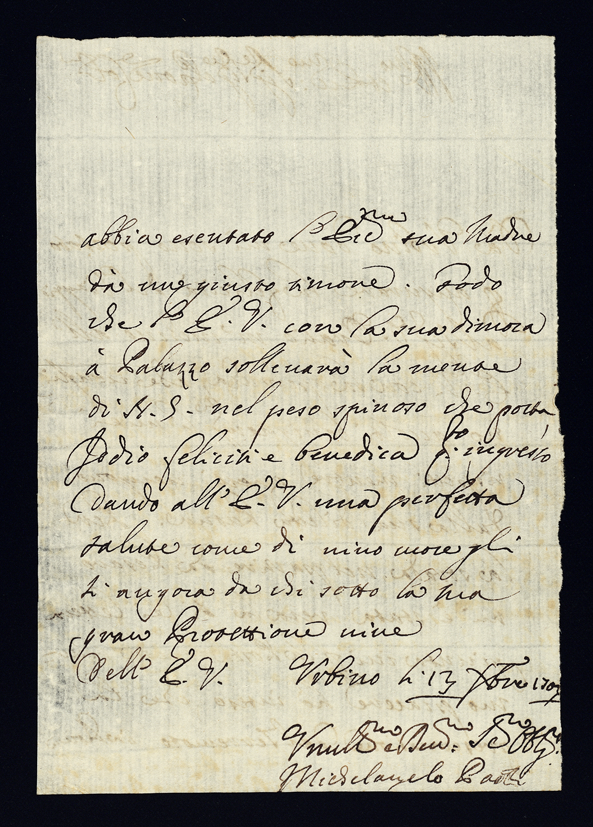 abbia esentato l'Ecc.ma sua Madre
da un giusto timore. Godo
che l'E. V. con la sua dimora
à Palazzo sollevarà la mente
di N. S. nel peso spinoso che porta
Iddio feliciti e benedica q.to ingresso
dando all'E. V. una perfetta
salute come di vivo cuore gli
li augora da chi sotto la sua
gran Protettione vive
Dell'E. V. Urbino li 13 Xbre
Umill.mo e Dev.mo Obblg.
Michelangelo